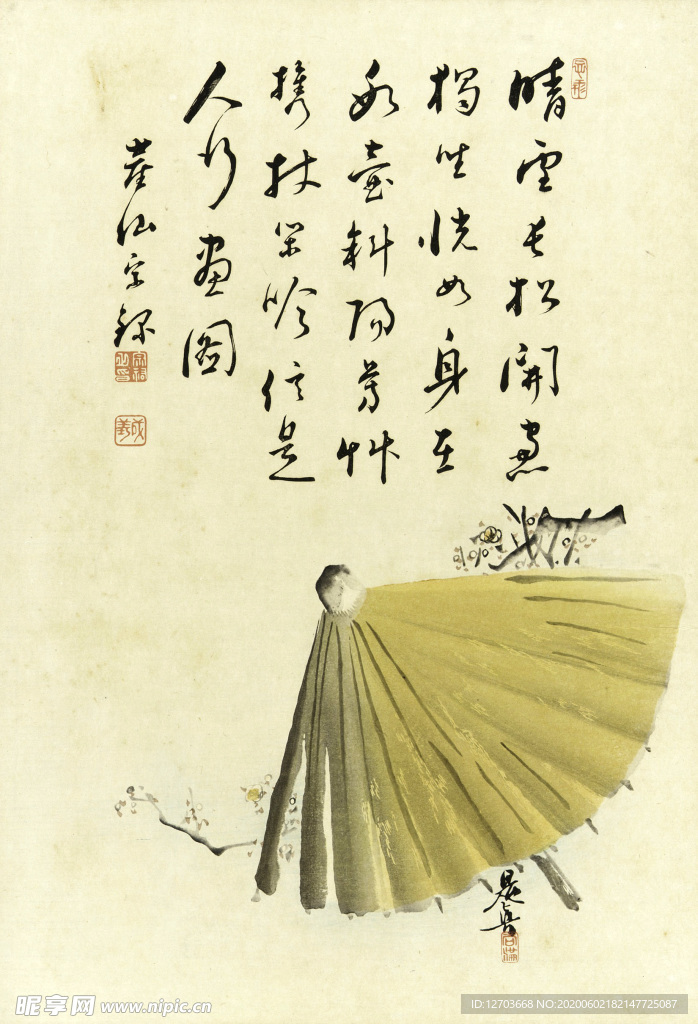 晴雪長松開窓
獨坐恍如身在
氷壺斜陽芳艸
携杖閑吟信是
人行畫圖
是真
昵享网 www.nipic.cn
ID:12703668 NO:20200602182147725087